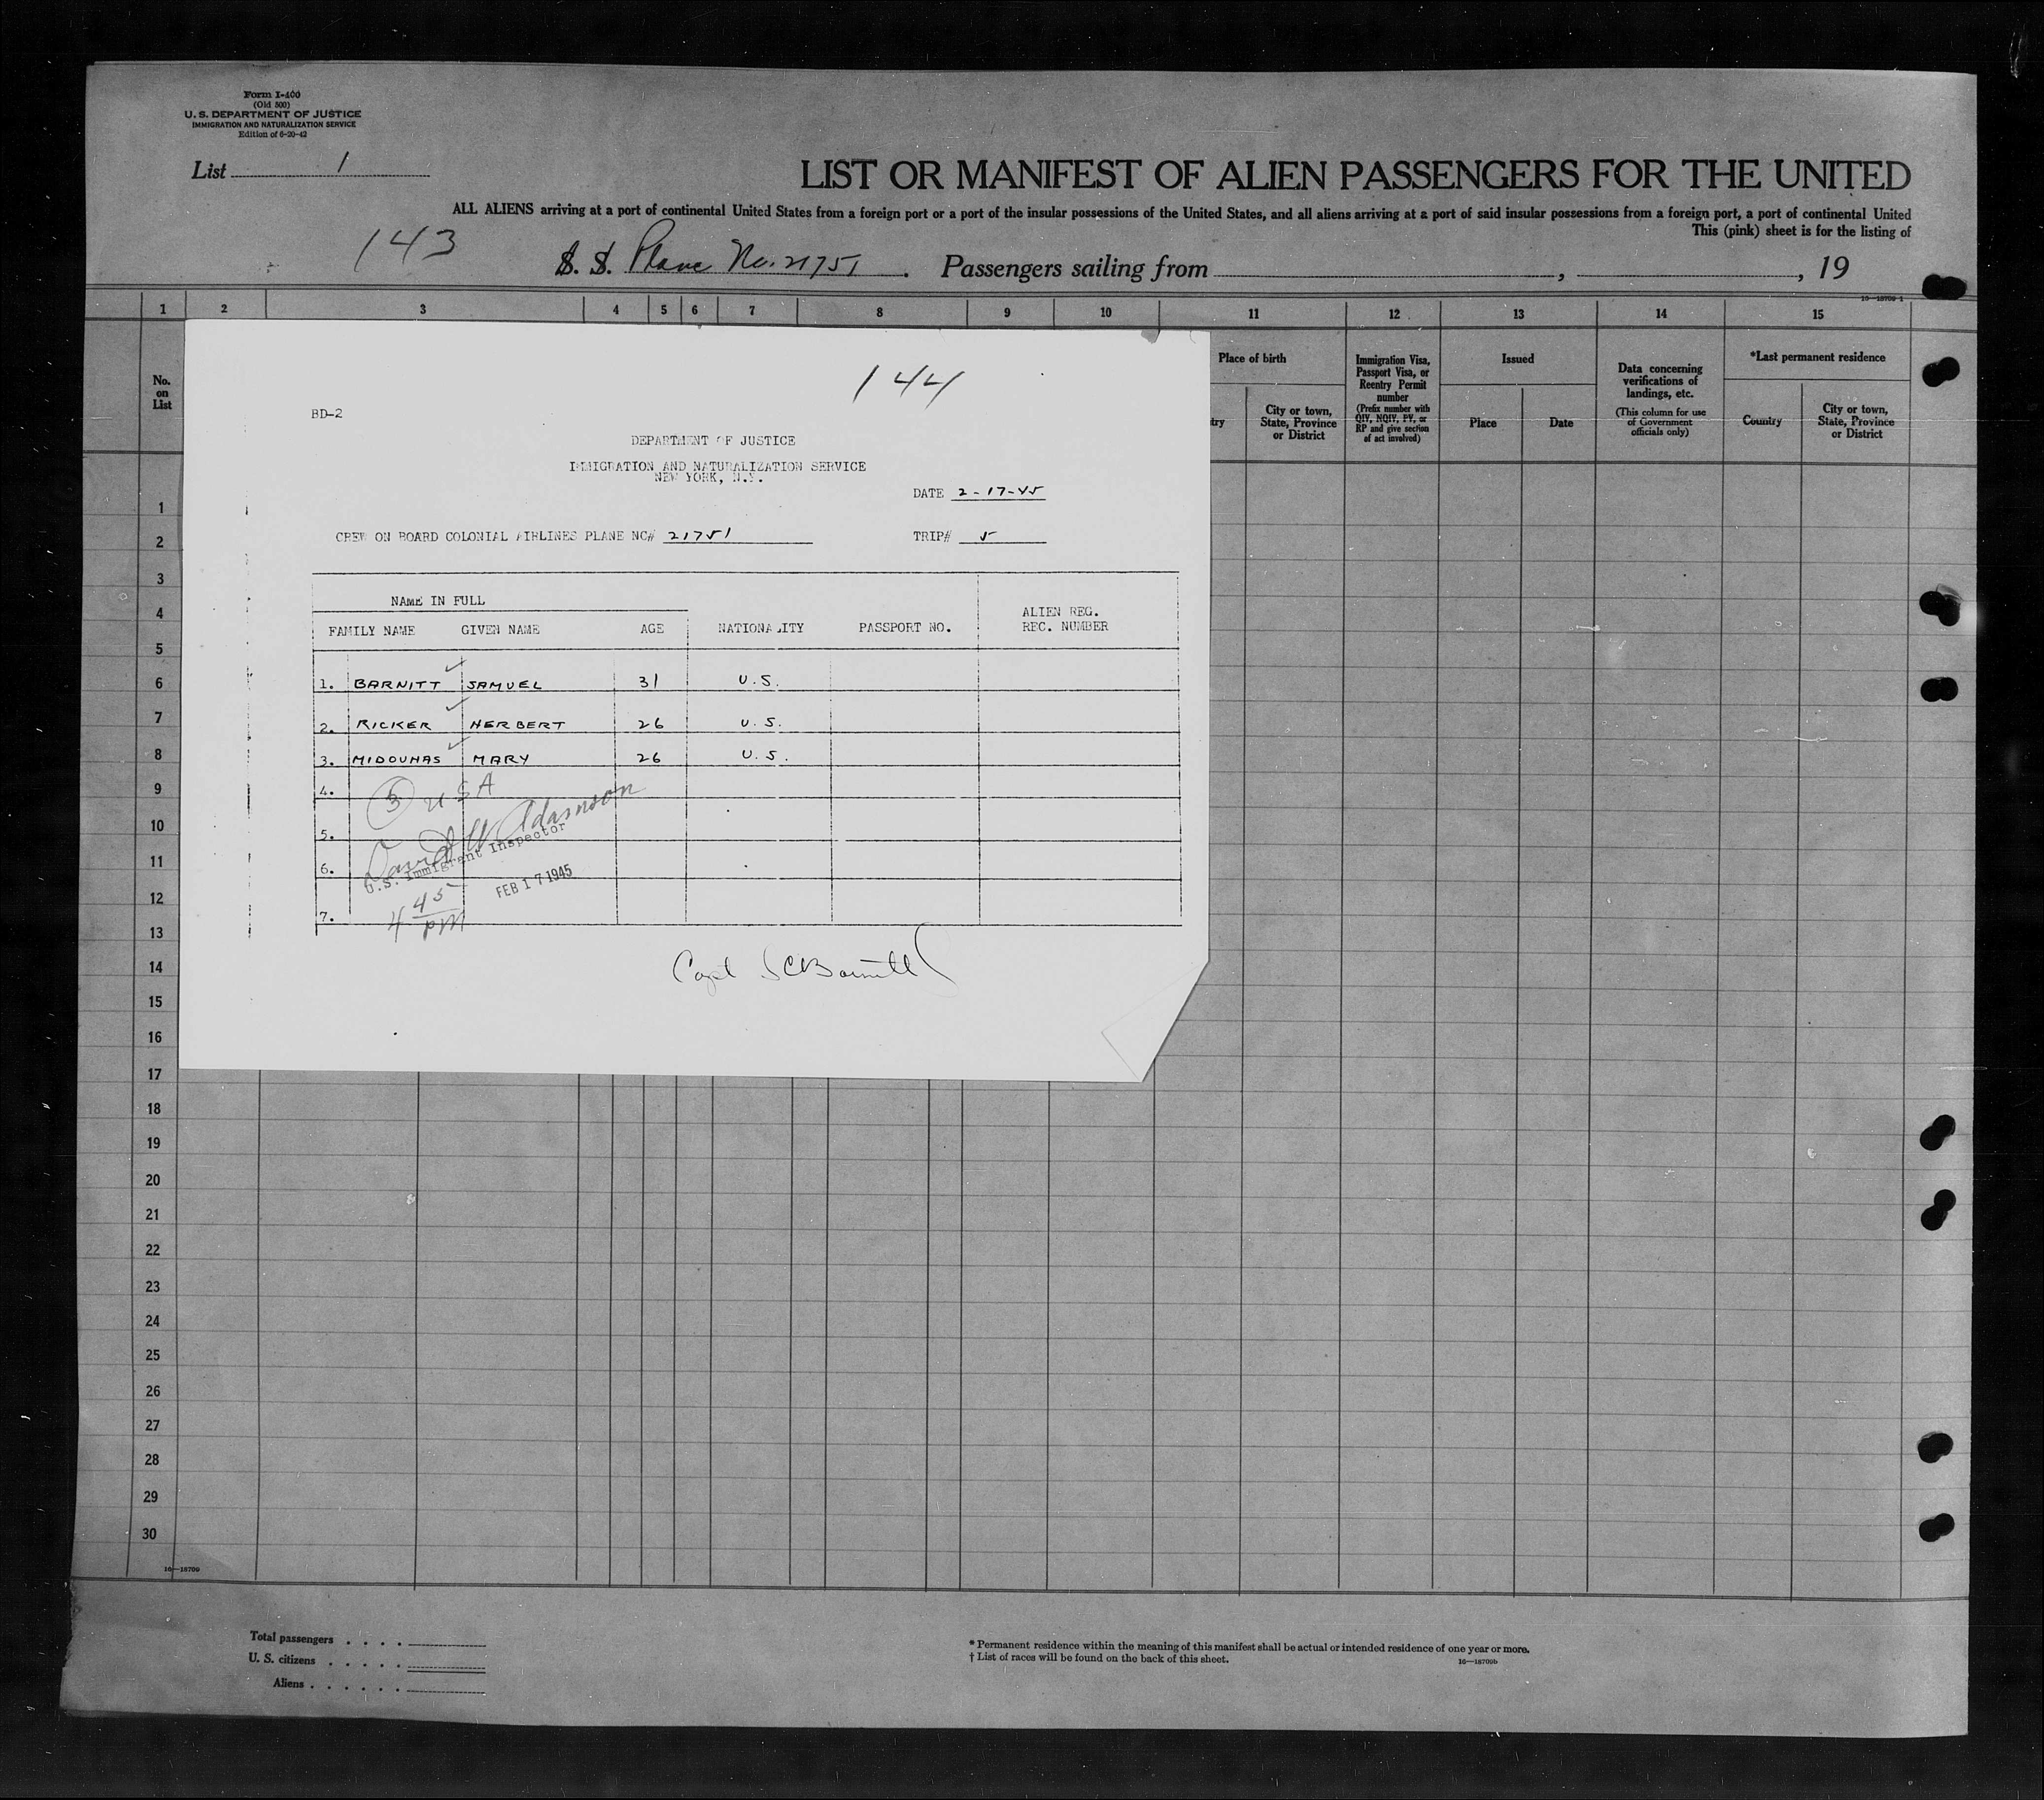 Form I-400
(Old 500)
U. S. DEPARTMENT OF JUSTICE
IMMIGRATION AND NATURALIZATION SERVICE
Edition of 6-20-42
List 1
LIST OR MANIFEST OF ALIEN PASSENGERS FOR THE UNITED
ALL ALIENS arriving at a port of continental United States from a foreign port or a port of the insular possessions of the United States, and all aliens arriving at a port of said insular possessions from a foreign port, a port of continental United
This (pink) sheet is for the listing of
143 S. S. Plane No. 21751. Passengers sailing from , , 19
16—18709-1
1 2 3 4 5 6 7 8 9 10 11 12 13 14 15
No. on List
Place of birth
try
City or town, State, Province or District
Immigration Visa, Passport Visa, or Reentry Permit number
(Prefix number with QIV, NQIV, PV, or RP and give section of act involved)
Issued
Place
Date
Data concerning verifications of landings, etc.
(This column for use of Government officials only)
*Last permanent residence
Country
City or town, State, Province or District
144
BD-2
DEPARTMENT OF JUSTICE
IMMIGRATION AND NATURALIZATION SERVICE
NEW YORK, N.Y.
DATE 2-17-45
CREW ON BOARD COLONIAL AIRLINES PLANE NC# 21751 TRIP# 5
NAME IN FULL
FAMILY NAME GIVEN NAME AGE NATIONALITY PASSPORT NO. ALIEN REG. REC. NUMBER
1. BARNITT SAMUEL 31 U.S.
2. RICKER HERBERT 26 U.S.
3. MIDOUHAS MARY 26 U.S.
4.
3 USA
5.
David W Adamson
6.
U.S. Immigrant Inspector
FEB 17 1945
7.
4 45 pm
Capt SCBarnitt
1
2
3
4
5
6
7
8
9
10
11
12
13
14
15
16
17
18
19
20
21
22
23
24
25
26
27
28
29
30
16—18709
Total passengers . . . .
U. S. citizens . . . . .
Aliens . . . . . .
* Permanent residence within the meaning of this manifest shall be actual or intended residence of one year or more.
† List of races will be found on the back of this sheet.
16—18709b